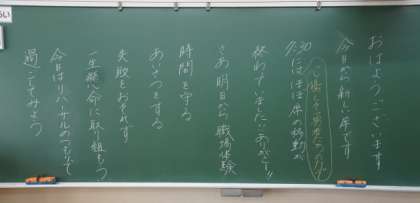 おはようございます
今日から新しい席です
7:30にはほぼ席の移動が
終わっていました ありがとう!!
さあ明日から職場体験
時間を守る
あいさつをする
失敗をおそれず
一生懸命に取り組もう
今日はリハーサルのつもりで
過ごしてみよう